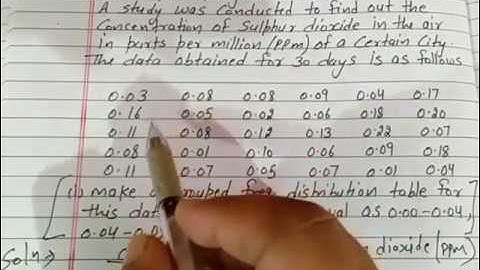 A study was conducted to find out the
Concentration of Sulphur dioxide in the air
in parts per million (PPm) of a Certain City.
The data obtained for 30 days is as follows
0.03 0.08 0.08 0.09 0.04 0.17
0.16 0.05 0.02 0.06 0.18 0.20
0.11 0.08 0.12 0.13 0.22 0.07
0.08 0.01 0.10 0.06 0.09 0.18
0.11 0.07 0.05 0.07 0.01 0.04
(i) make a grouped freq distribution table for
this dat val as 0.00-0.04,
0.04-0.0
Soln⇒ dioxide (PPm)